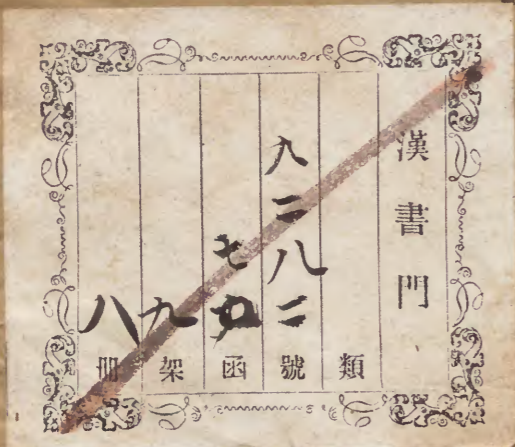 漢書門
類
八二八二號
七函
九架
八冊